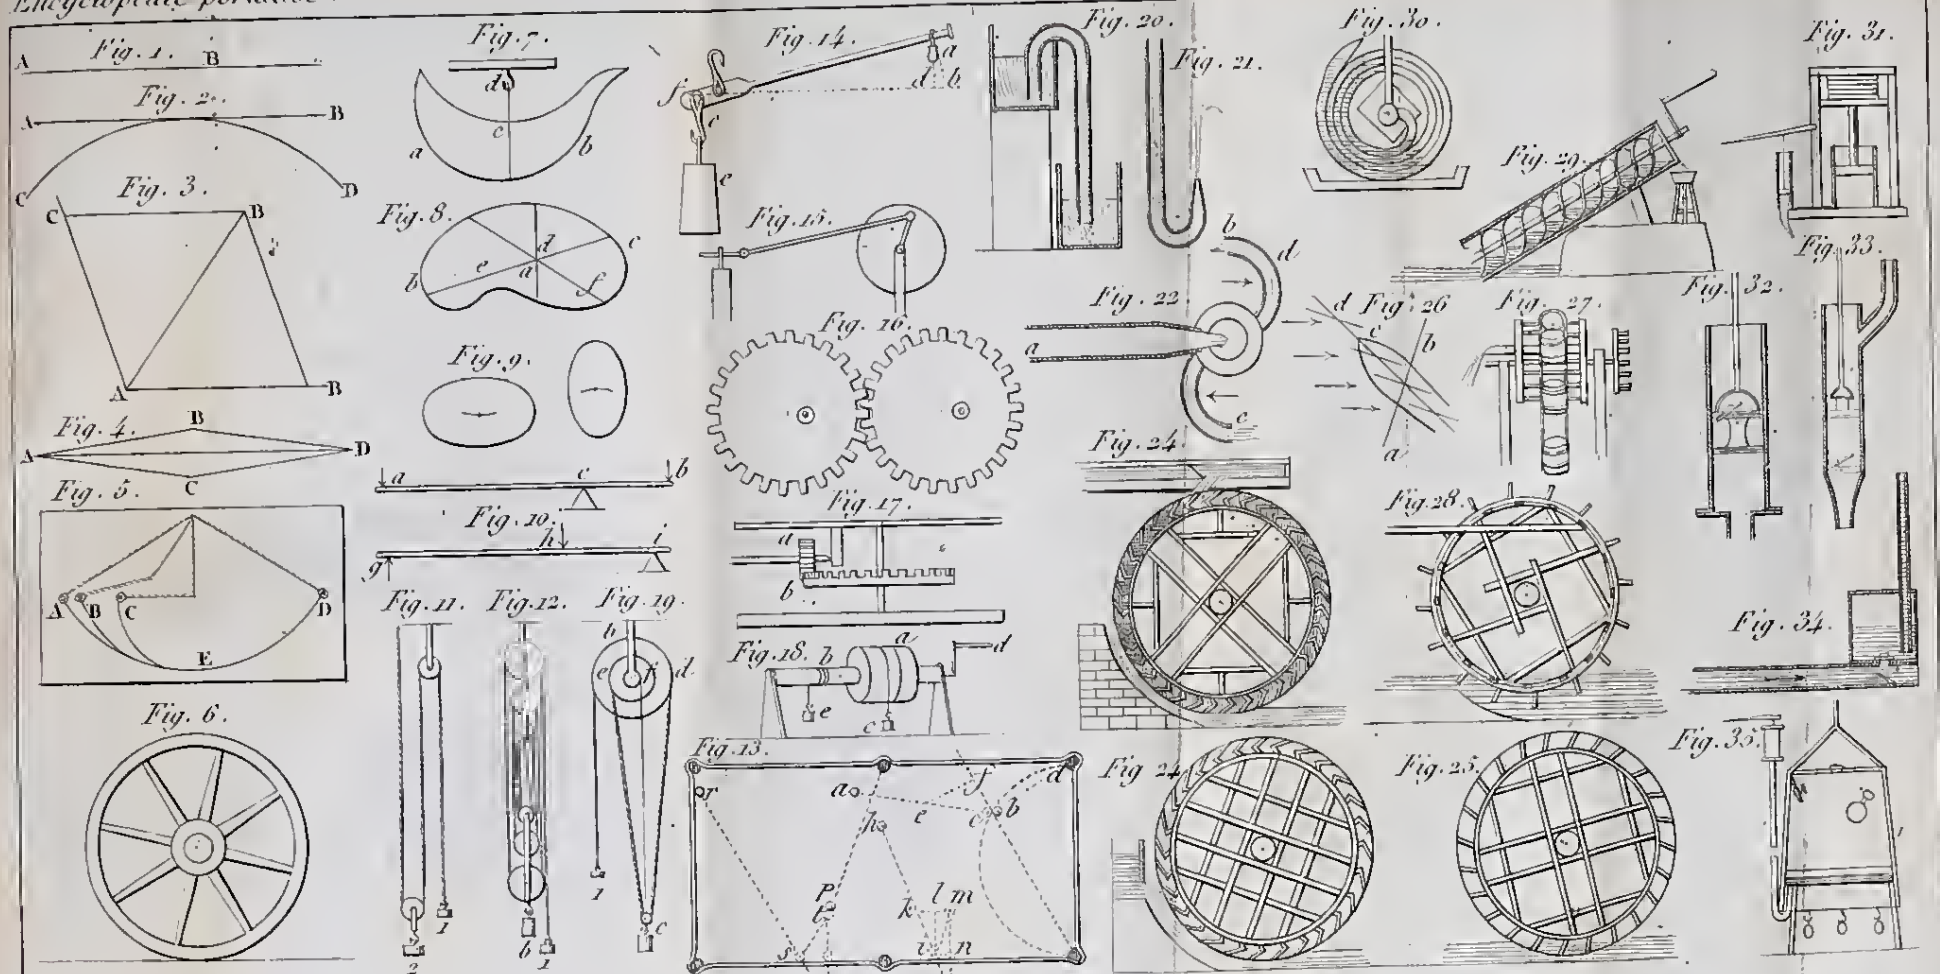 Encyclopédie portative
Fig. 1.
A B
Fig. 2.
A B
C D
Fig. 3.
C B
A B
Fig. 4.
B
A D
C
Fig. 5.
A B C D
E
Fig. 6.
Fig. 7.
d
c
a b
Fig. 8.
d c
b e a f
Fig. 9.
a c b
Fig. 10.
h i
g
Fig. 11.
1
2
Fig. 12.
6 1
Fig. 19.
b
e f d
1 c
Fig. 14.
a
f d b
c
e
Fig. 15.
Fig. 16.
Fig. 17.
a
b
Fig. 18.
a
b d
e c
Fig. 13.
r a f d
e c b
h
p
k l m
s i n
Fig. 20.
Fig. 21.
Fig. 22
b
d
a
c
Fig. 24.
Fig. 24
Fig. 25.
Fig. 26
d
c
b
a
Fig. 27.
Fig. 28.
Fig. 29.
Fig. 30.
Fig. 31.
Fig. 32.
Fig. 33.
Fig. 34.
Fig. 35.